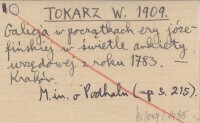 TOKARZ W. 1909.
Galicja w początkach ery józe-
fińskiej w świetle ankiety
urzędowej z roku 1783. —
Kraków.
M.in. o Podhalu (np s. 215).